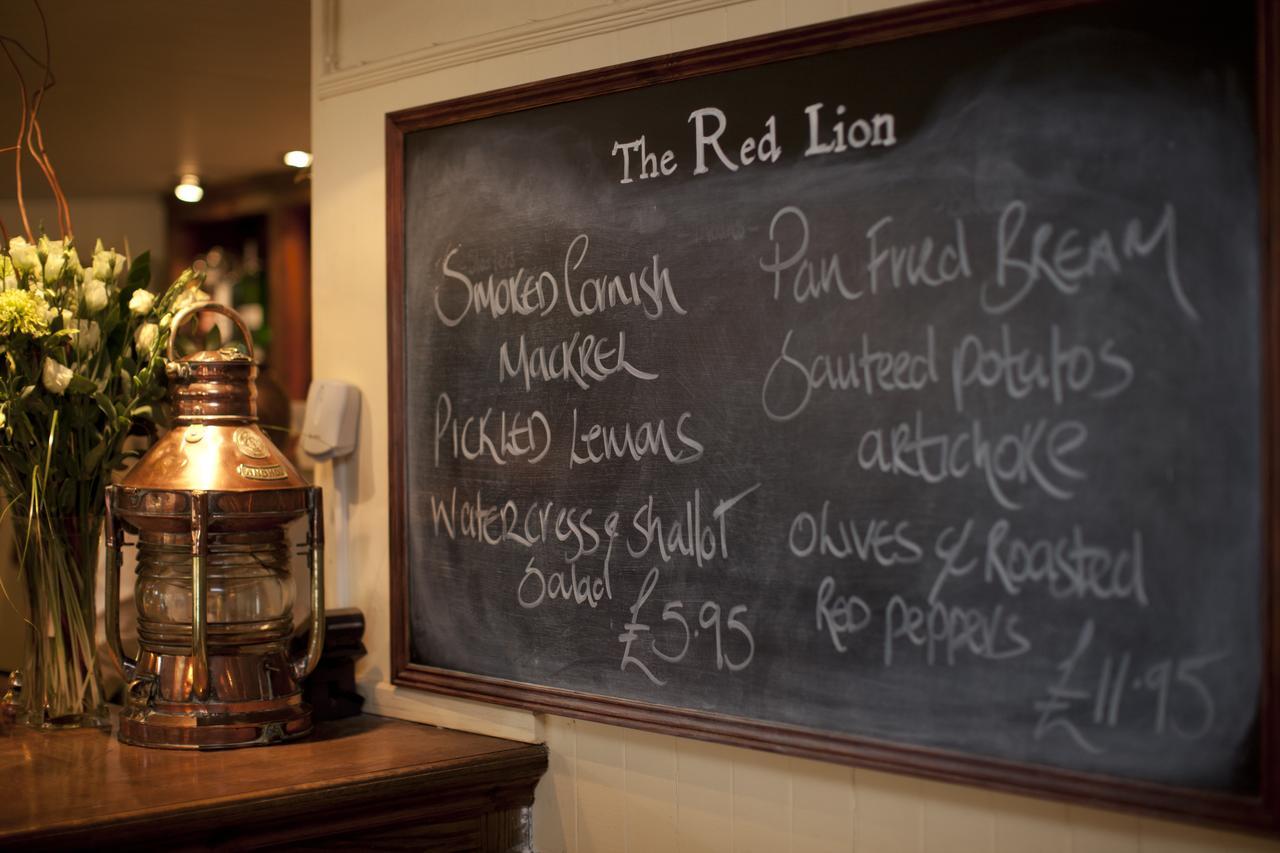 The Red Lion
Smoked Cornish
Mackrel
Pickled Lemons
Watercress & Shallot
Salad
£5.95
Pan Fried BREAM
Sauteed potatos
artichoke
Olives & Roasted
Red peppers
£11.95